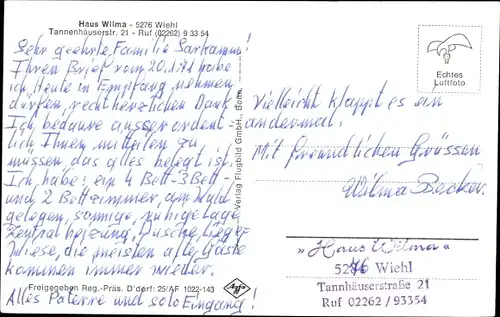 Haus Wilma - 5276 Wiehl
Tannenhäuserstr. 21 - Ruf (02262) 9 33 54
Sehr geehrte Familie Sarkamm!
Ihren Brief vom 20.1.71 habe
ich, Heute in Empfang nehmen
dürfen, recht herzlichen Dank
Ich bedaure ausserordent-
lich Ihnen mitteilen zu
müssen, das alles belegt ist.
Ich habe: ein 4 Bett-3 Bett-
und 2 Bettzimmer, am Wald
gelegen, sonnige, ruhige Lage
Zentralheizung, Dusche, Liege-
Wiese, die meisten alte Gäste
kommen immer wieder.
Alles Paterre und solo Eingang!
Freigegeben Reg.-Präs. D'dorf: 25/AF 1022-143
Agfa
Verlag Flugbild GmbH., Bonn
Echtes
Luftfoto
Vielleicht klappt es ein
andermal.
Mit freundlichen Grüssen
Wilma Becker.
"Haus Wilma"
5276 Wiehl
Tannhäuserstraße 21
Ruf 02262 / 93354